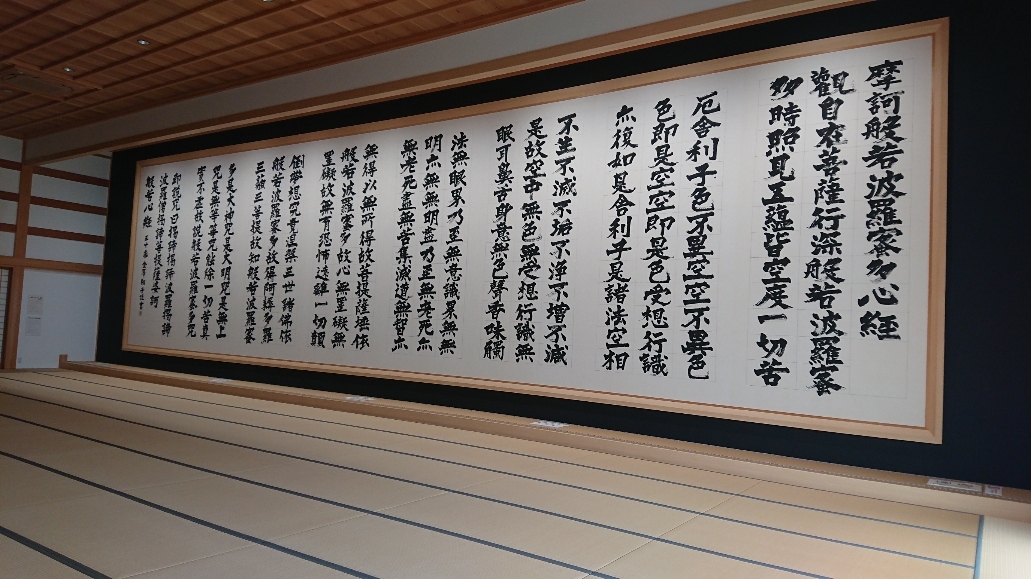 摩訶般若波羅蜜多心経
觀自在菩薩行深般若波羅蜜
多時照見五蘊皆空度一切苦
厄舍利子色不異空空不異色
色即是空空即是色受想行識
亦復如是舍利子是諸法空相
不生不滅不垢不淨不增不減
是故空中無色無受想行識無
眼耳鼻舌身意無色聲香味觸
法無眼界乃至無意識界無無
明亦無無明盡乃至無老死亦
無老死盡無苦集滅道無智亦
無得以無所得故菩提薩埵依
般若波羅蜜多故心無罣礙無
罣礙故無有恐怖遠離一切顛
倒夢想究竟涅槃三世諸佛依
般若波羅蜜多故得阿耨多羅
三藐三菩提故知般若波羅蜜
多是大神咒是大明咒是無上
咒是無等等咒能除一切苦真
實不虛故說般若波羅蜜多咒
即說咒曰揭諦揭諦波羅揭諦
波羅僧揭諦菩提薩婆訶
般若心經